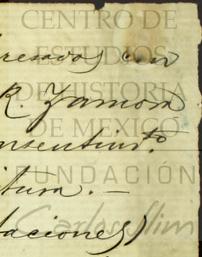 CENTRO DE
ESTUDIOS
DE HISTORIA
DE MÉXICO
FUNDACIÓN
Carlos Slim
resados con
R. Zamora
nsentim.to
itura. —
taciones)